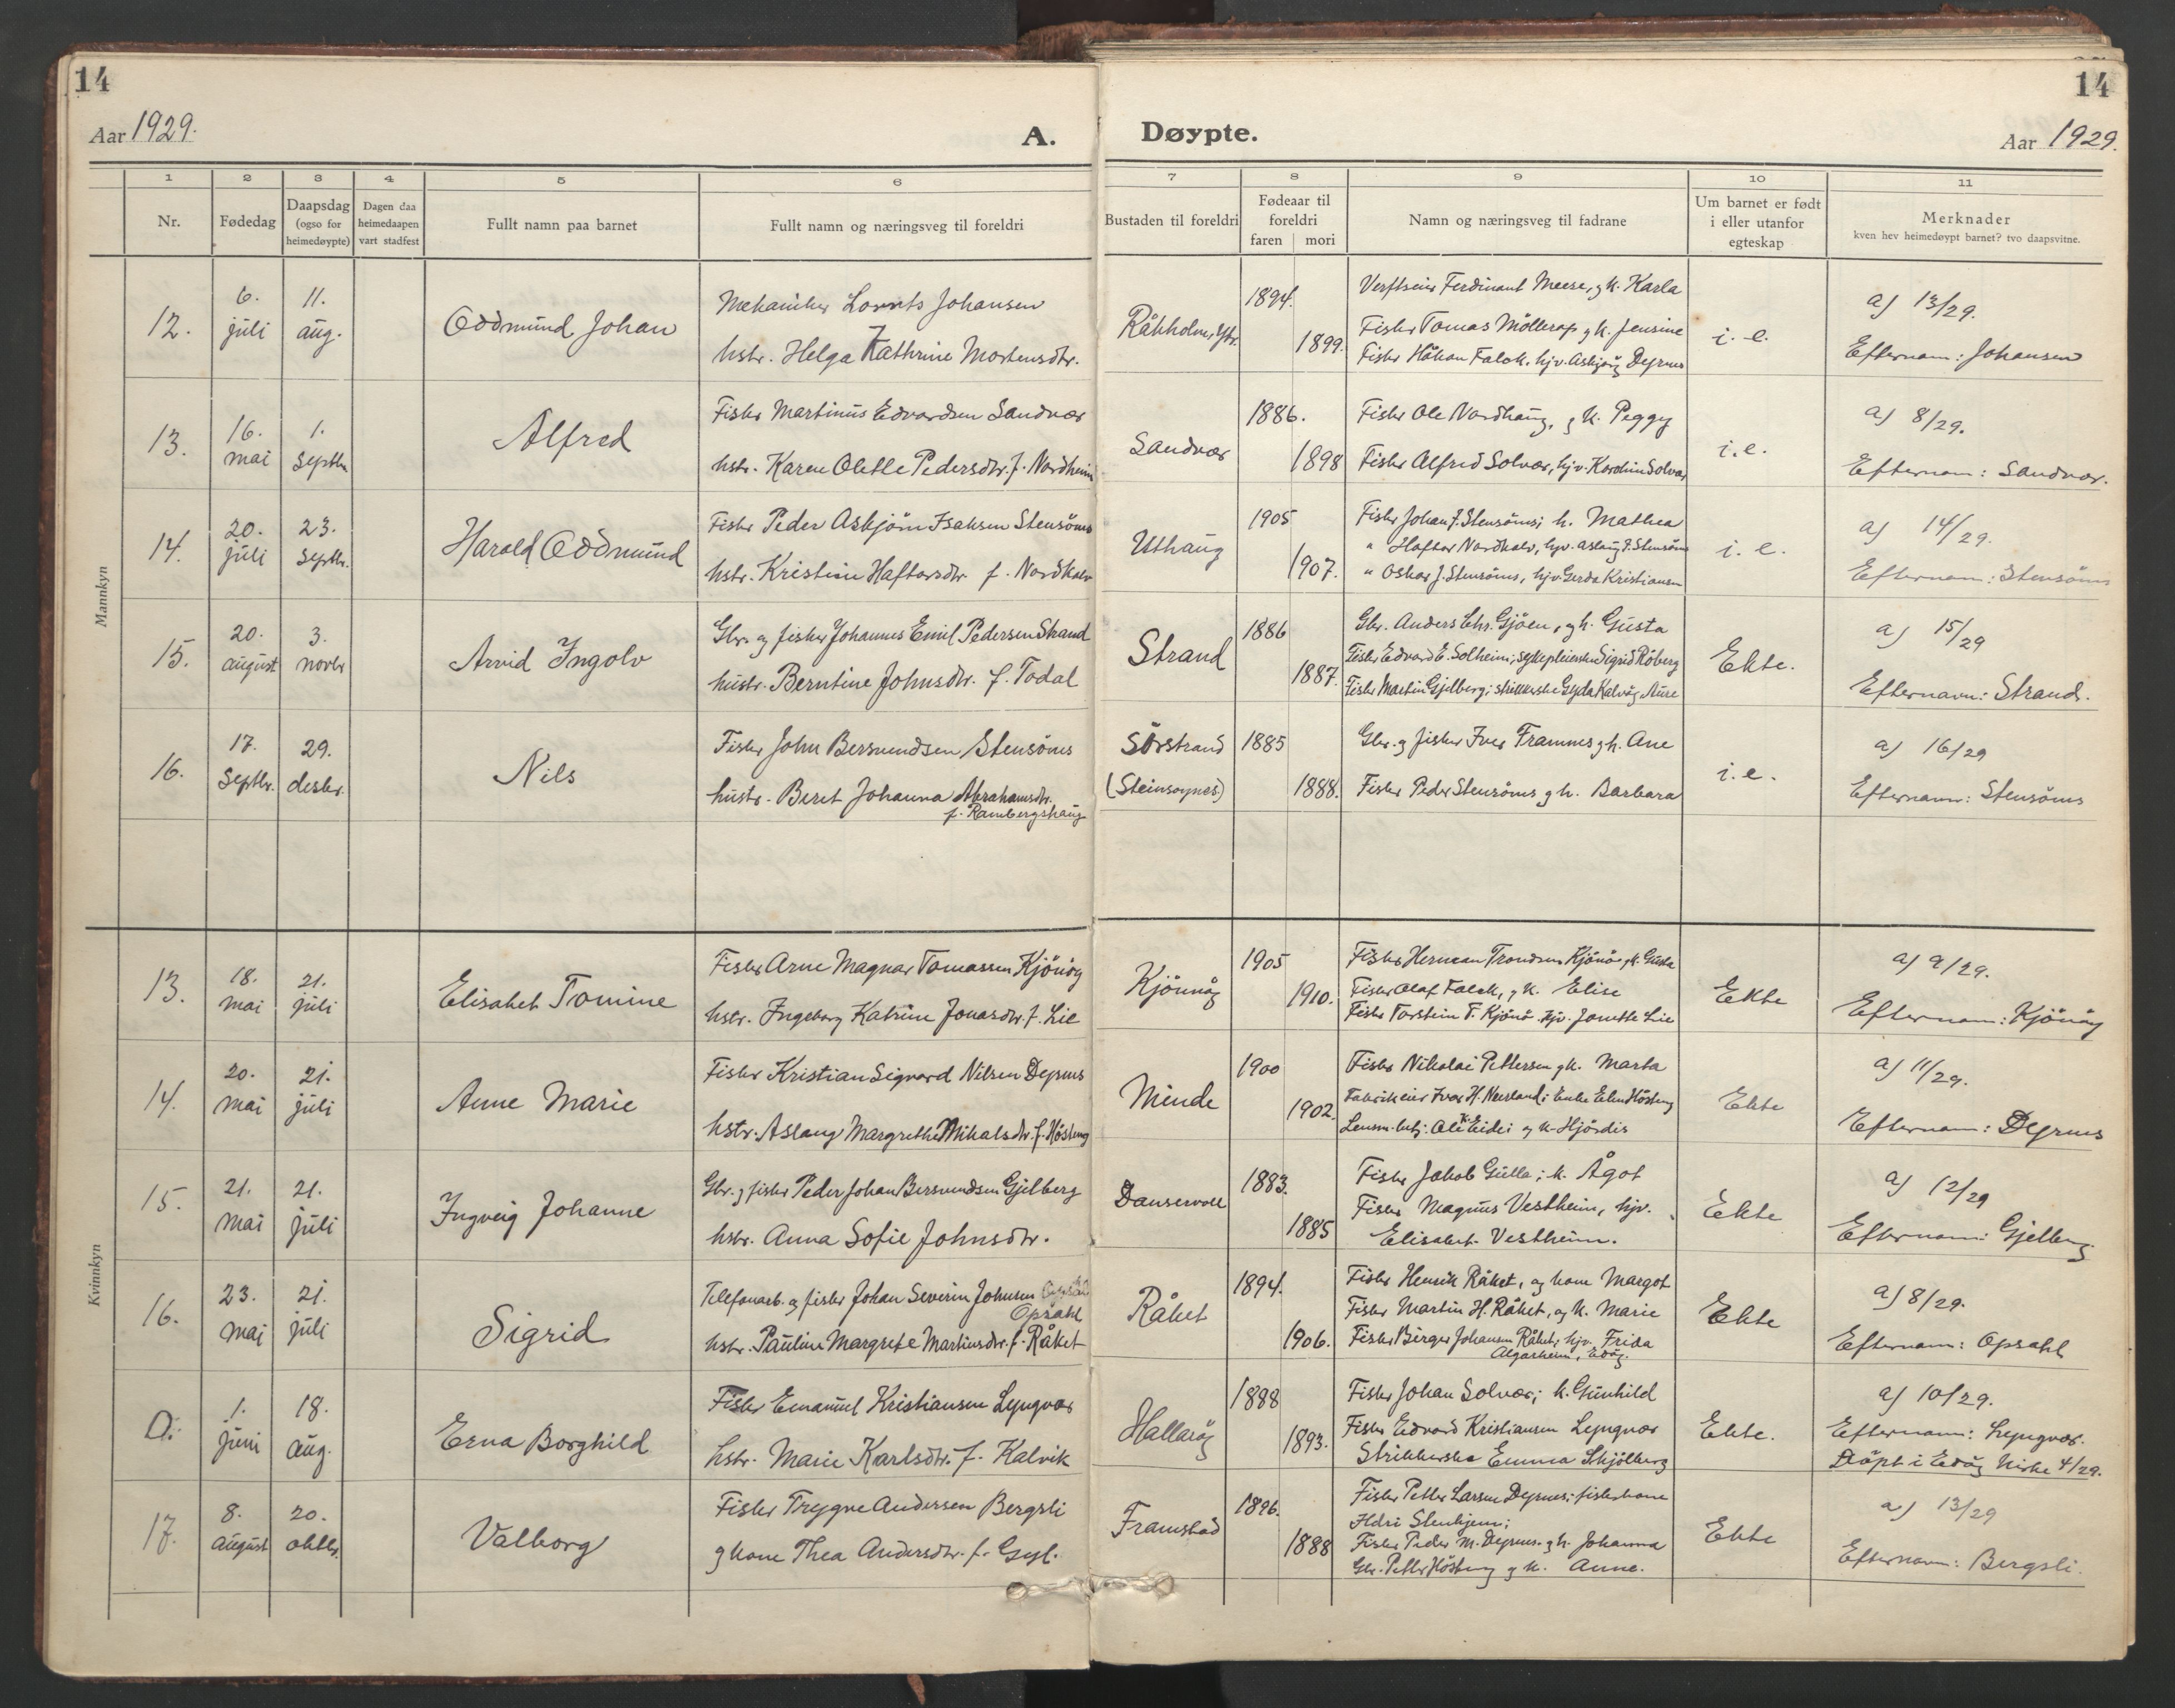 14
Aar 1929.
A.
1 2 3 4 5 6
Nr.
Fødedag
Daapsdag (ogso for heimedøypte)
Dagen daa heimedaapen vart stadfest
Fullt namn paa barnet
Fullt namn og næringsveg til foreldri
Mannkyn
12.
6. juli
11. aug.
Oddmund Johan
Mekaniker Lorents Johansen
hstr. Helga Kathrine Mortensdtr.
13.
16. mai
1. septbr
Alfred
Fisker Martinus Edvardsen Sandvær
hstr. Karen Olette Pedersdtr. f. Nordheim
14.
20. juli
23. septbr.
Harald Oddmund
Fisker Peder Asbjörn Isaksen Stensönes
hstr. Kristine Haftorsdtr. f. Nordkalv
15.
20. august
3. novbr
Arvid Ingolv
Gbr. og fisker Johannes Emil Pedersen Strand
hustr. Berntine Johnsdtr. f. Todal
16.
17. septbr.
29. desbr.
Nils
Fisker John Bersvendsen Stensönes
hustr. Beret Johanna Abrahamsdtr.
f. Rambergshaug
Kvinnkyn
13.
18. mai
21. juli
Elisabet Tomine
Fisker Arne Magnar Tomassen Kjönöy
hstr. Ingeborg Katrine Jonasdtr. f. Lie
14.
20. mai
21. juli
Anne Marie
Fisker Kristian Sigvard Nilsen Dyrnes
hstr. Aslaug Margrethe Mikalsdtr. f. Hösteng
15.
21. mai
21. juli
Ingveig Johanne
Gbr. og fisker Peder Johan Bersvendsen Gjelberg
hstr. Anna Sofie Johnsdtr.
16.
23. mai
21. juli
Sigrid
Telefonarb. og fisker Johan Severin Johnsen
Opsahl
hstr. Pauline Margrete Martinsdtr. f. Råket
D.
1. juni
18. aug.
Erna Borghild
Fisker Emanuel Kristiansen Lyngvær
hstr. Marie Karlsdtr. f. Kalvik
17.
8. august
20. oktbr.
Valborg
Fisker Trygve Andersen Bergsli
g kone Thea Andersdtr. f. Gyl.
14
Døypte.
Aar 1929.
7 8 9 10 11
Bustaden til foreldri
Fødeaar til foreldri
faren mori
Namn og næringsveg til fadrane
Um barnet er født i eller utanfor egteskap
Merknader
kven hev heimedøypt barnet? tvo daapsvitne.
Råkholm,
1894.
1899.
Verftseier Ferdinant Meese, g k. Karla
Fisker Tomas Möllerop g k. Jensine
Fisker Håkon Falck, hjv. Asbjörg Dyrnes
i. e.
a) 13/29.
Efternam: Johansen
Sandvær
1886.
1898
Fisker Ole Nordhaug, g k. Peggy
Fisker Alfred Solvær, hjv. Karoline Solvær
i.e.
a) 8/29.
Efternam: Sandvær.
Uthaug
1905
1907.
Fisker Johan J. Stensönes; h. Mathea
" Haftor Nordkalv, hjv. Aslaug J. Stensönes
" Oskar J. Stensönes, hjv. Gerda Kristiansen
i. e.
a) 14/29.
Efternam: Stensönes
Strand
1886
1887.
Gbr. Anders Chr. Gjöen, g h. Gusta
Fisker Edvard E. Solheim; sykepleierske Sigrid Röberg
Fisker Martin Gjelberg; strikkerske Gyda Kalvåg Aure
Ekte.
a) 15/29
Efternavn: Strand.
Sörstrand
(Steinsoynes)
1885
1888.
Gbr. g fisker Iver Framnes g h. Ane
Fisker Peder Stensönes g h. Barbara
i.e.
a) 16/29
Efternavn: Stensönes
Kjönnöy
1905
1910.
Fisker Herman Trondsen Kjönöy, k. Gusta
Fisker Olaf Falck, g k. Elise
Fisker Torstein T. Kjönö. hjv. Jonette Lie
Ekte
a) 9/29.
Efternam: Kjönöy
Minde
1900
1902.
Fisker Nikolai Pettersen g k. Marta
Fabrikeier Ivar H. Neerland; Enke Elen Hösteng
Lensm. betj. Ole K. Eide; og k. Hjördis
Ekte
a) 11/29.
Efternam: Dyrnes
Danservoll
1883.
1885
Fisker Jakob Gulla; k. Ågot
Fisker Magnus Vestheim, hjv.
Elisabet Vestheim.
Ekte
a) 12/29
Efternam: Gjelberg
Råket
1894.
1906.
Fisker Henrik Råket, og kone Margot
Fisker Martin H. Råket, og k. Marie
Fisker Birger Johansen Råket; hjv. Frida
Algarheim, Edöy.
Ekte
a) 8/29.
Efternam: Opsahl
Hallaröy
1888
1893.
Fisker Johan Solvær; k. Gunhild
Fisker Edvard Kristiansen Lyngvær
Strikkerske Emma Skjölberg
Ekte.
a) 10/29.
Efternam: Lyngvær.
Döpt i Edöy kirke 4/29.
Framstad
1896.
1888
Fisker Petter Larsen Dyrnes; fiskerkone
Stenhjem;
Fisker Peder M. Dyrnes g h. Johanna
Gbr. Petter Hösteng g k. Anne.
Ekte
a) 13/29
Efternavn: Bergsli.